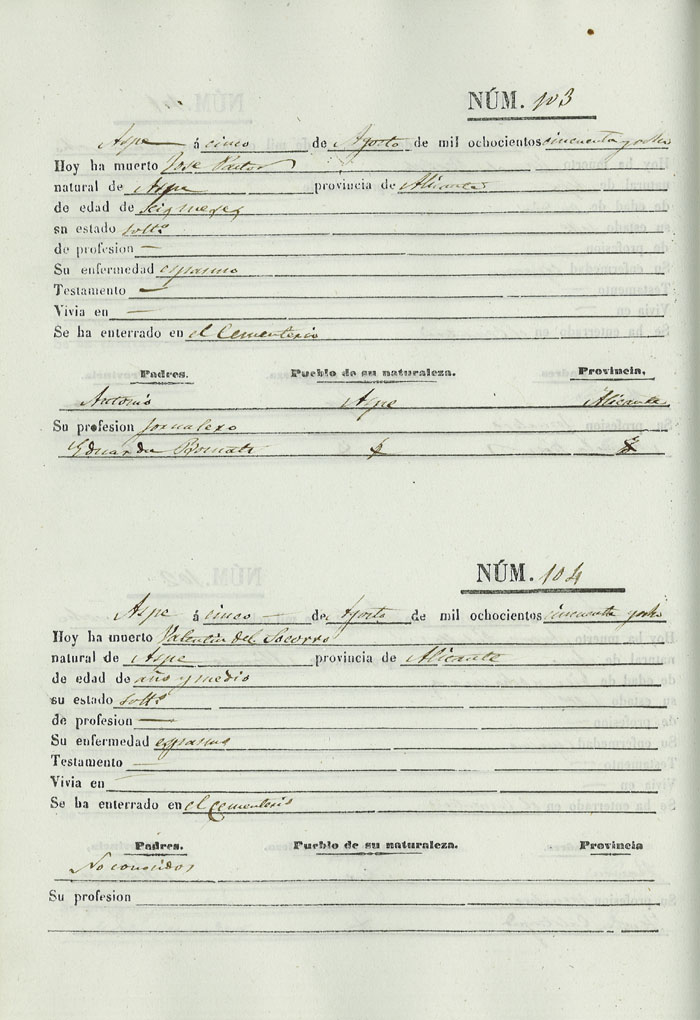 NÚM. 103
Aspe á cinco de Agosto de mil ochocientos cincuenta y ocho
Hoy ha muerto Jose Pastor
natural de Aspe provincia de Alicante
de edad de seis meses
sn estado solto
de profesion —
Su enfermedad espasmo
Testamento —
Vivia en —
Se ha enterrado en el Cementerio
Padres. Pueblo de su naturaleza. Provincia.
Antonio Aspe Alicante
Su profesion Jornalero
Eduarda
NÚM. 104
Aspe á cinco — de Agosto de mil ochocientos cincuenta y ocho
Hoy ha muerto Valentin del Socorro
natural de Aspe provincia de Alicante
de edad de año y medio
su estado solto
de profesion —
Su enfermedad espasmo
Testamento —
Vivia en —
Se ha enterrado en el Cementerio
Padres. Pueblo de su naturaleza. Provincia
No conosidos
Su profesion